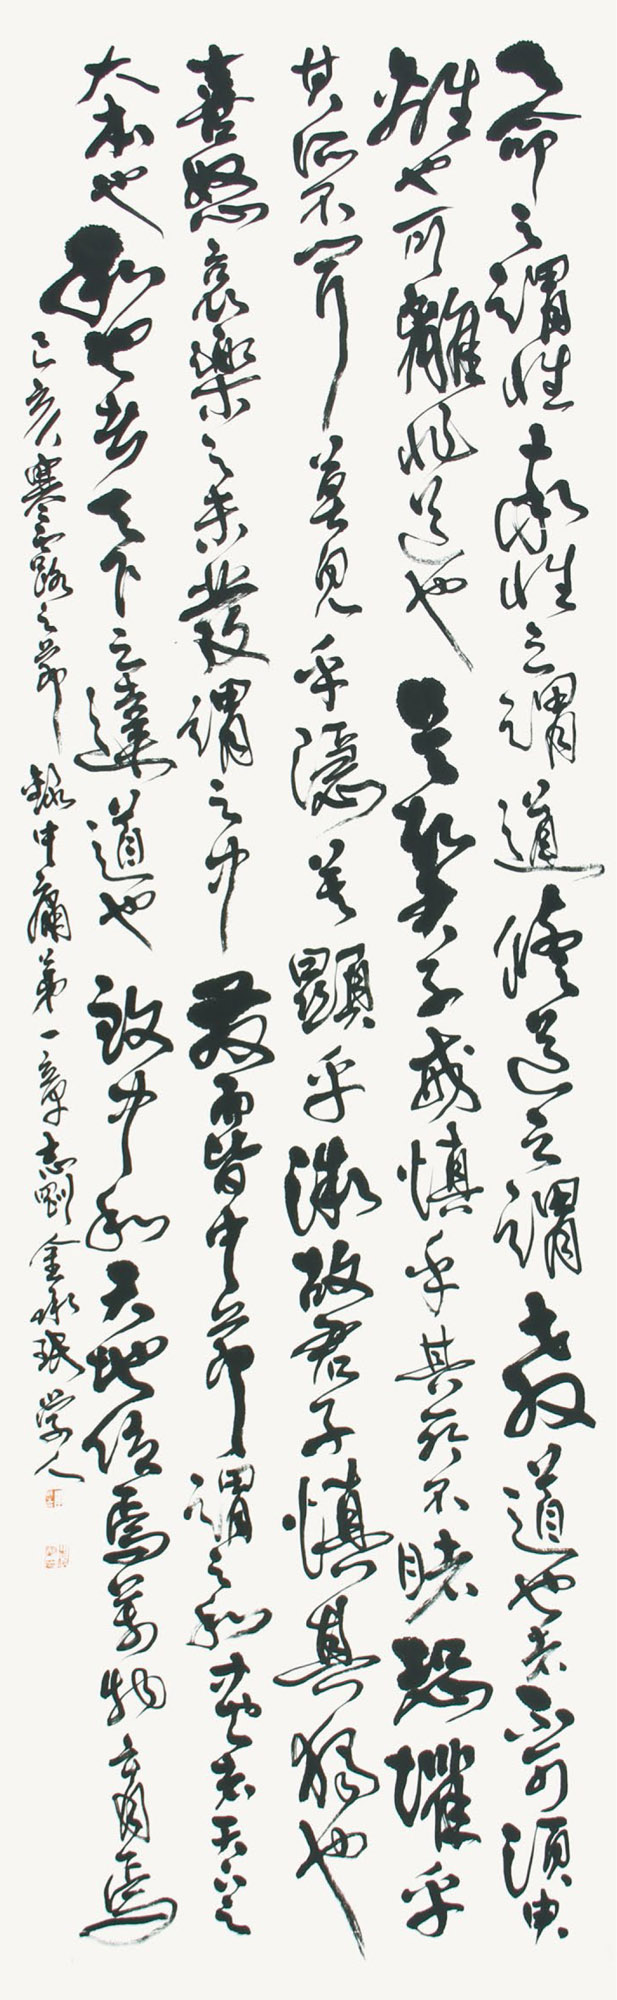 天命之謂性率性之謂道脩道之謂教道也者不可須臾
離也可離非道也是故君子戒慎乎其所不睹恐懼乎
其所不聞莫見乎隱莫顯乎微故君子慎其獨也
喜怒哀樂之未發謂之中發而皆中節謂之和中也者天下之
大本也和也者天下之達道也致中和天地位焉萬物育焉
己亥寒露之節 錄中庸第一章志剛金永珉學人